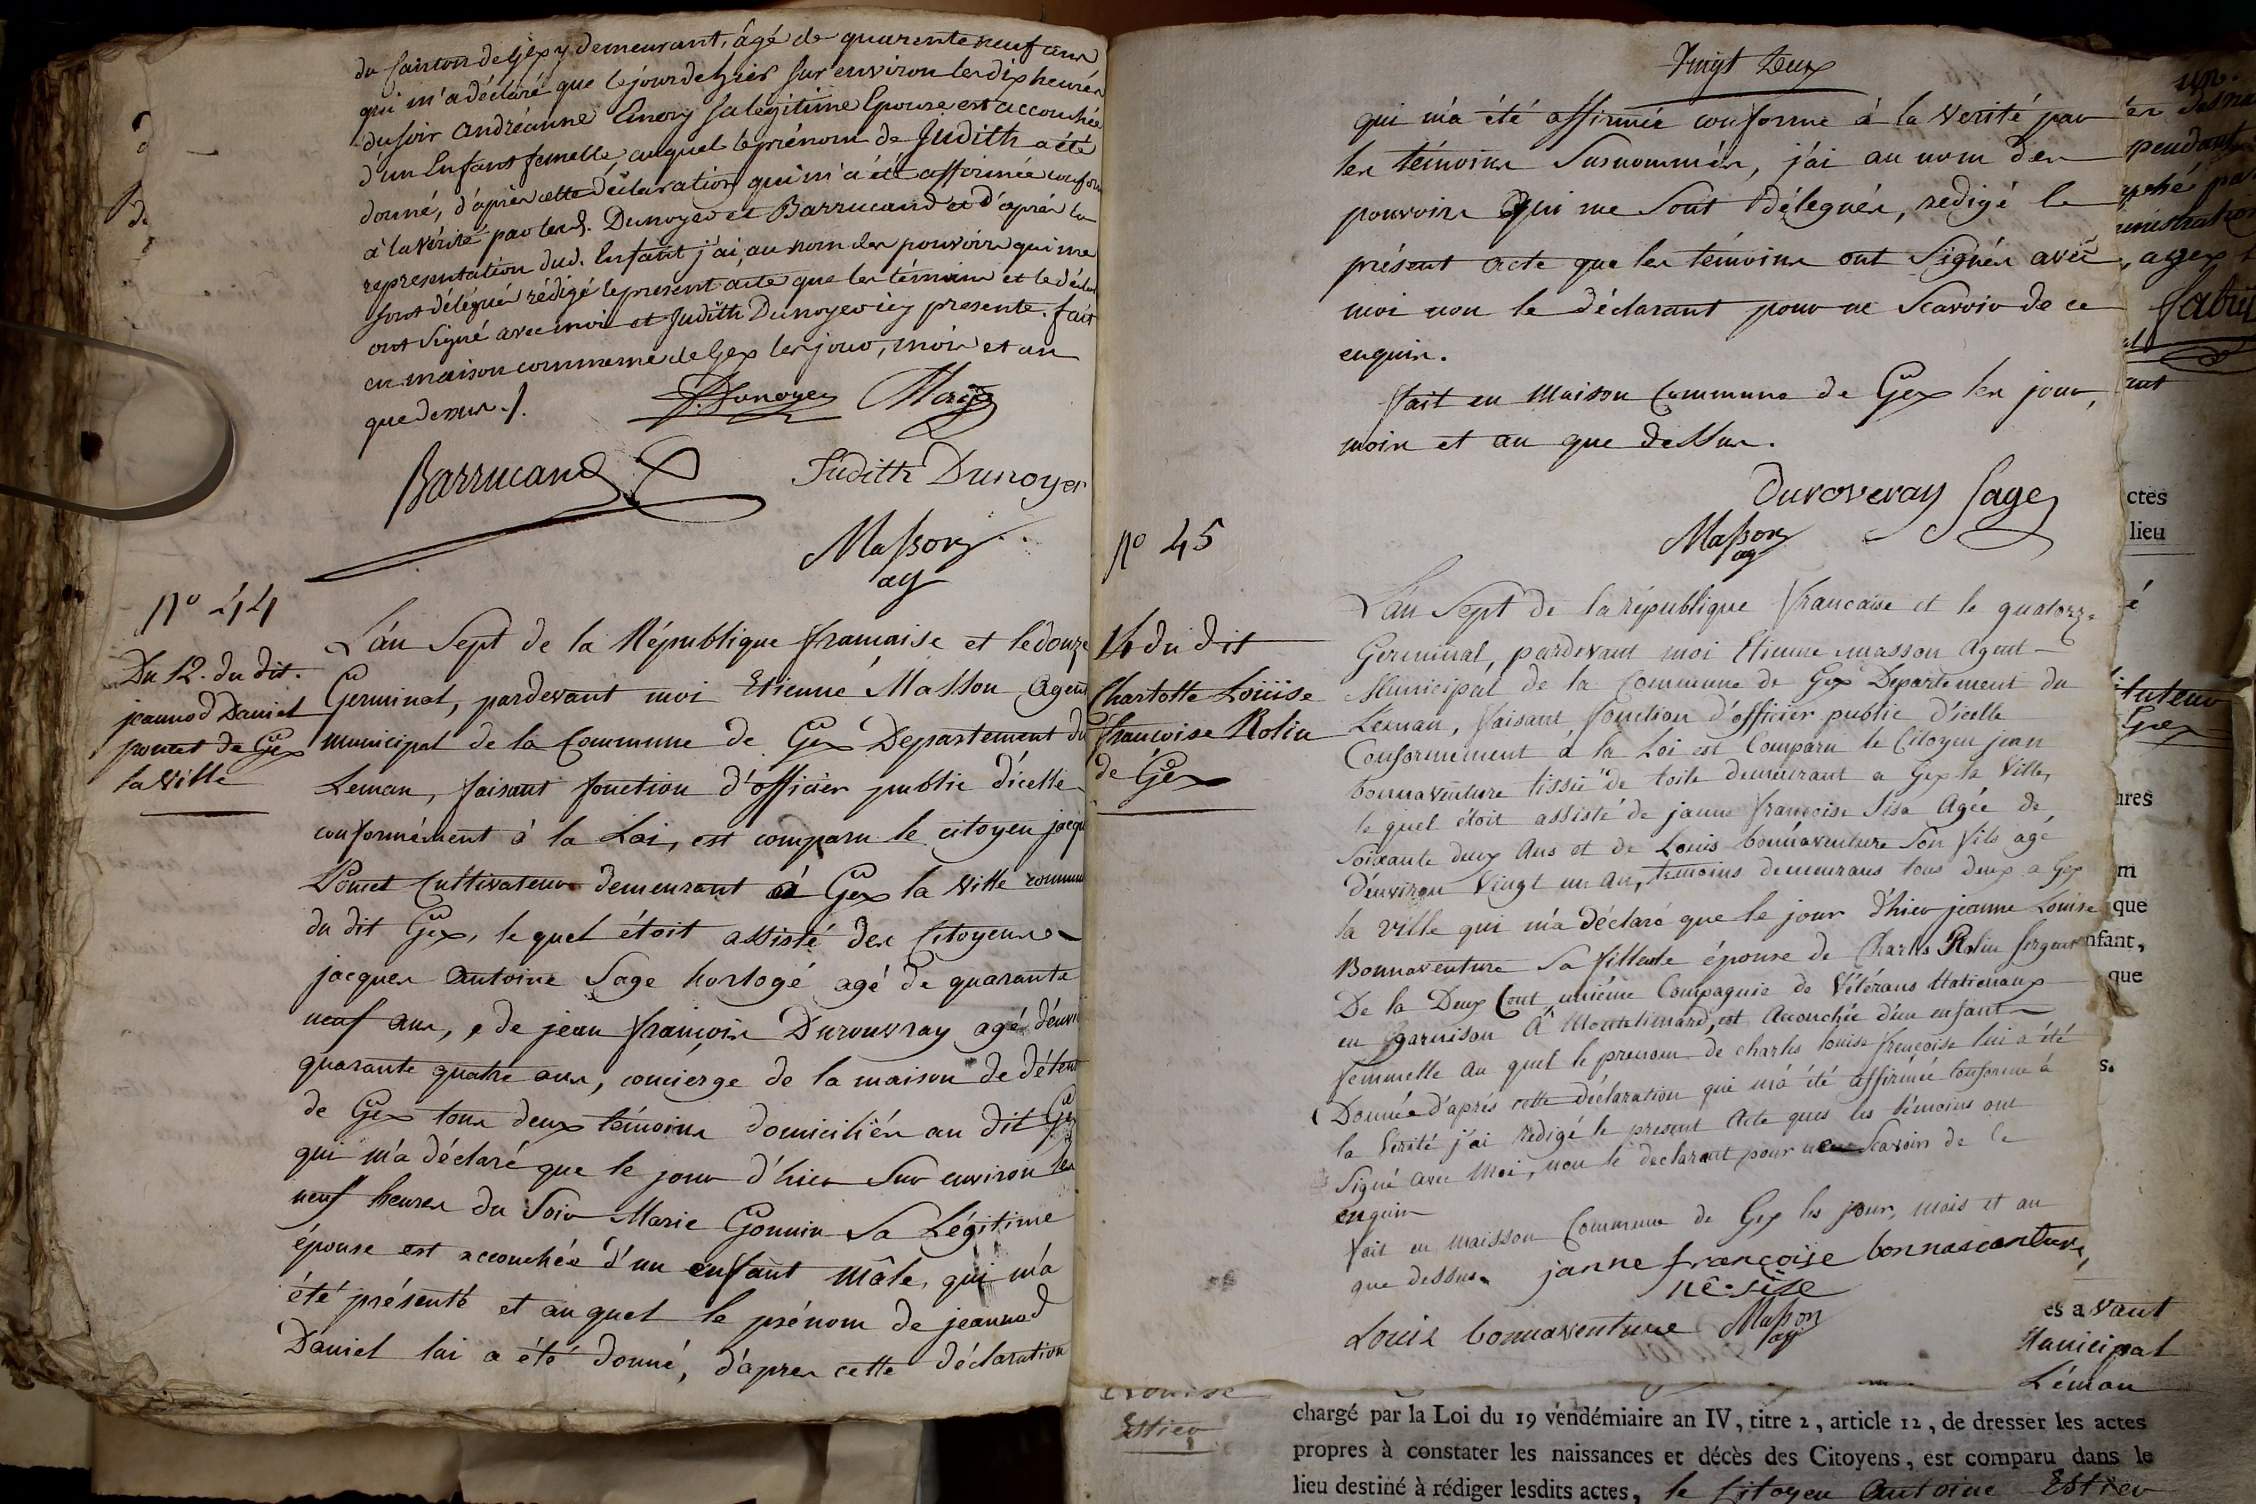 du Canton de Gex y demeurant, âgé de quarente neuf ans
qui m'a déclaré que le jour de hier sur environ les dix heures
du soir andréanne Emery sa légitime Epouse est accouchée
d'un Enfant femelle, auquel le prénom de Judith a été
donné, d'après cette déclaration qui m'a été affirmée conforme
à la Vérité par les d. Dunoyer et Barrucand et d'après la
representation dud. Enfant j'ai, au nom des pouvoirs qui me
sont délégué rédigé le present acte que les témoins et le décla
ont signé avec moi et Judith Dunoyer icy presente. fait
en maison commune de Gex les jour, mois et an
que dessus ./.
Dunoyer
Barrucand
Judith Dunoyer
Masson
ag
N° 44
Du 12. du dit.
jeannod Daniel
poncet de Gex
la Ville
L'an Sept de la République française et le douze
Germinal, pardevant moi Etienne Masson Agent
municipal de la Commune de Gex Departement du
Leman, faisant fonction d'officier public d'icelle
conformément à la Loi, est comparu le citoyen jacqu
Poncet Cultivateur demeurant à Gex la Ville commun
du dit Gex, lequel étoit assisté des Citoyens
jacques antoine Sage horlogé agé de quarante
neuf ans, e de jean françois Durouvray agé d'envir
quarante quatre ans, concierge de la maison de détent
de Gex tous deux témoins domiciliés au dit Gex
qui m'a déclaré que le jour d'hier Sur environ les
neuf heures du Soir Marie Gonnin Sa Légitime
épouse est accouchée d'un enfant mâle, qui m'a
été présenté et auquel le prénom de jeannod
Daniel lui a été donné, d'apres cette déclaration
Vingt deux
qui m'a été affirmée conforme à la verité par
les témoins Susnommés, j'ai au nom des
pouvoirs qui me sont délegués, redigé le
présent acte que les témoins ont Signés avec
moi non le déclarant pour ne Scavoir de ce
enquis.
fait en Maison Commune de Gex les jour,
mois et an que dessus.
Duroveray Sage
Masson
ag
N° 45
14 du dit
Charlotte Loüise
françoise Rolin
de Gex
L'an Sept de la république francaise et le quatorze
Germinal, pardevant moi Etienne masson Agent
Municipal de la Commune de Gex Departement du
Leman, faisant fonction d'officier public d'icelle
Conformement a la Loi est Comparu le Citoyen jean
bonnaventure tissié de toile demeurant a Gex la Ville,
le quel étoit assisté de janne françoise Sise Agée de
Soixante deux Ans et de Louis bonnaventure Son fils agé
d'environ Vingt un an, temoins demeurans tous deux a Gex
la ville qui m'a déclaré que le jour d'hier jeanne Louise
Bonnaventure Sa fille épouse de Charles Rolin Sergent
De la Deux Cent unième Compagnie de Vétérans Nationaux
en Garnison A Montelimard, est Accouchée d'un enfant
femmelle Au quel le prenom de charles louise françoise lui a été
Donnée d'aprés cette déclaration qui m'a été affirmée Conforme à
la Vérité j'ai redigé le present Acte ques les témoins ont
Signé avec Moi, non le declarant pour ne Scavoir de Ce
enquis
fait en maisson Commune de Gex les jour, mois et an
que dessus.
janne françoise bonnaventure
né-sise
Louis bonnaventure
Masson
ag
un.
pendant
ctes
lieu
é
tuteur
Gex
ures
m
que
nfant,
que
s.
es avant
Municipal
Léman
Estier
chargé par la Loi du 19 vendémiaire an IV, titre 2, article 12, de dresser les actes
propres à constater les naissances et décès des Citoyens, est comparu dans le
lieu destiné à rédiger lesdits actes, le Citoyen Antoine Estier